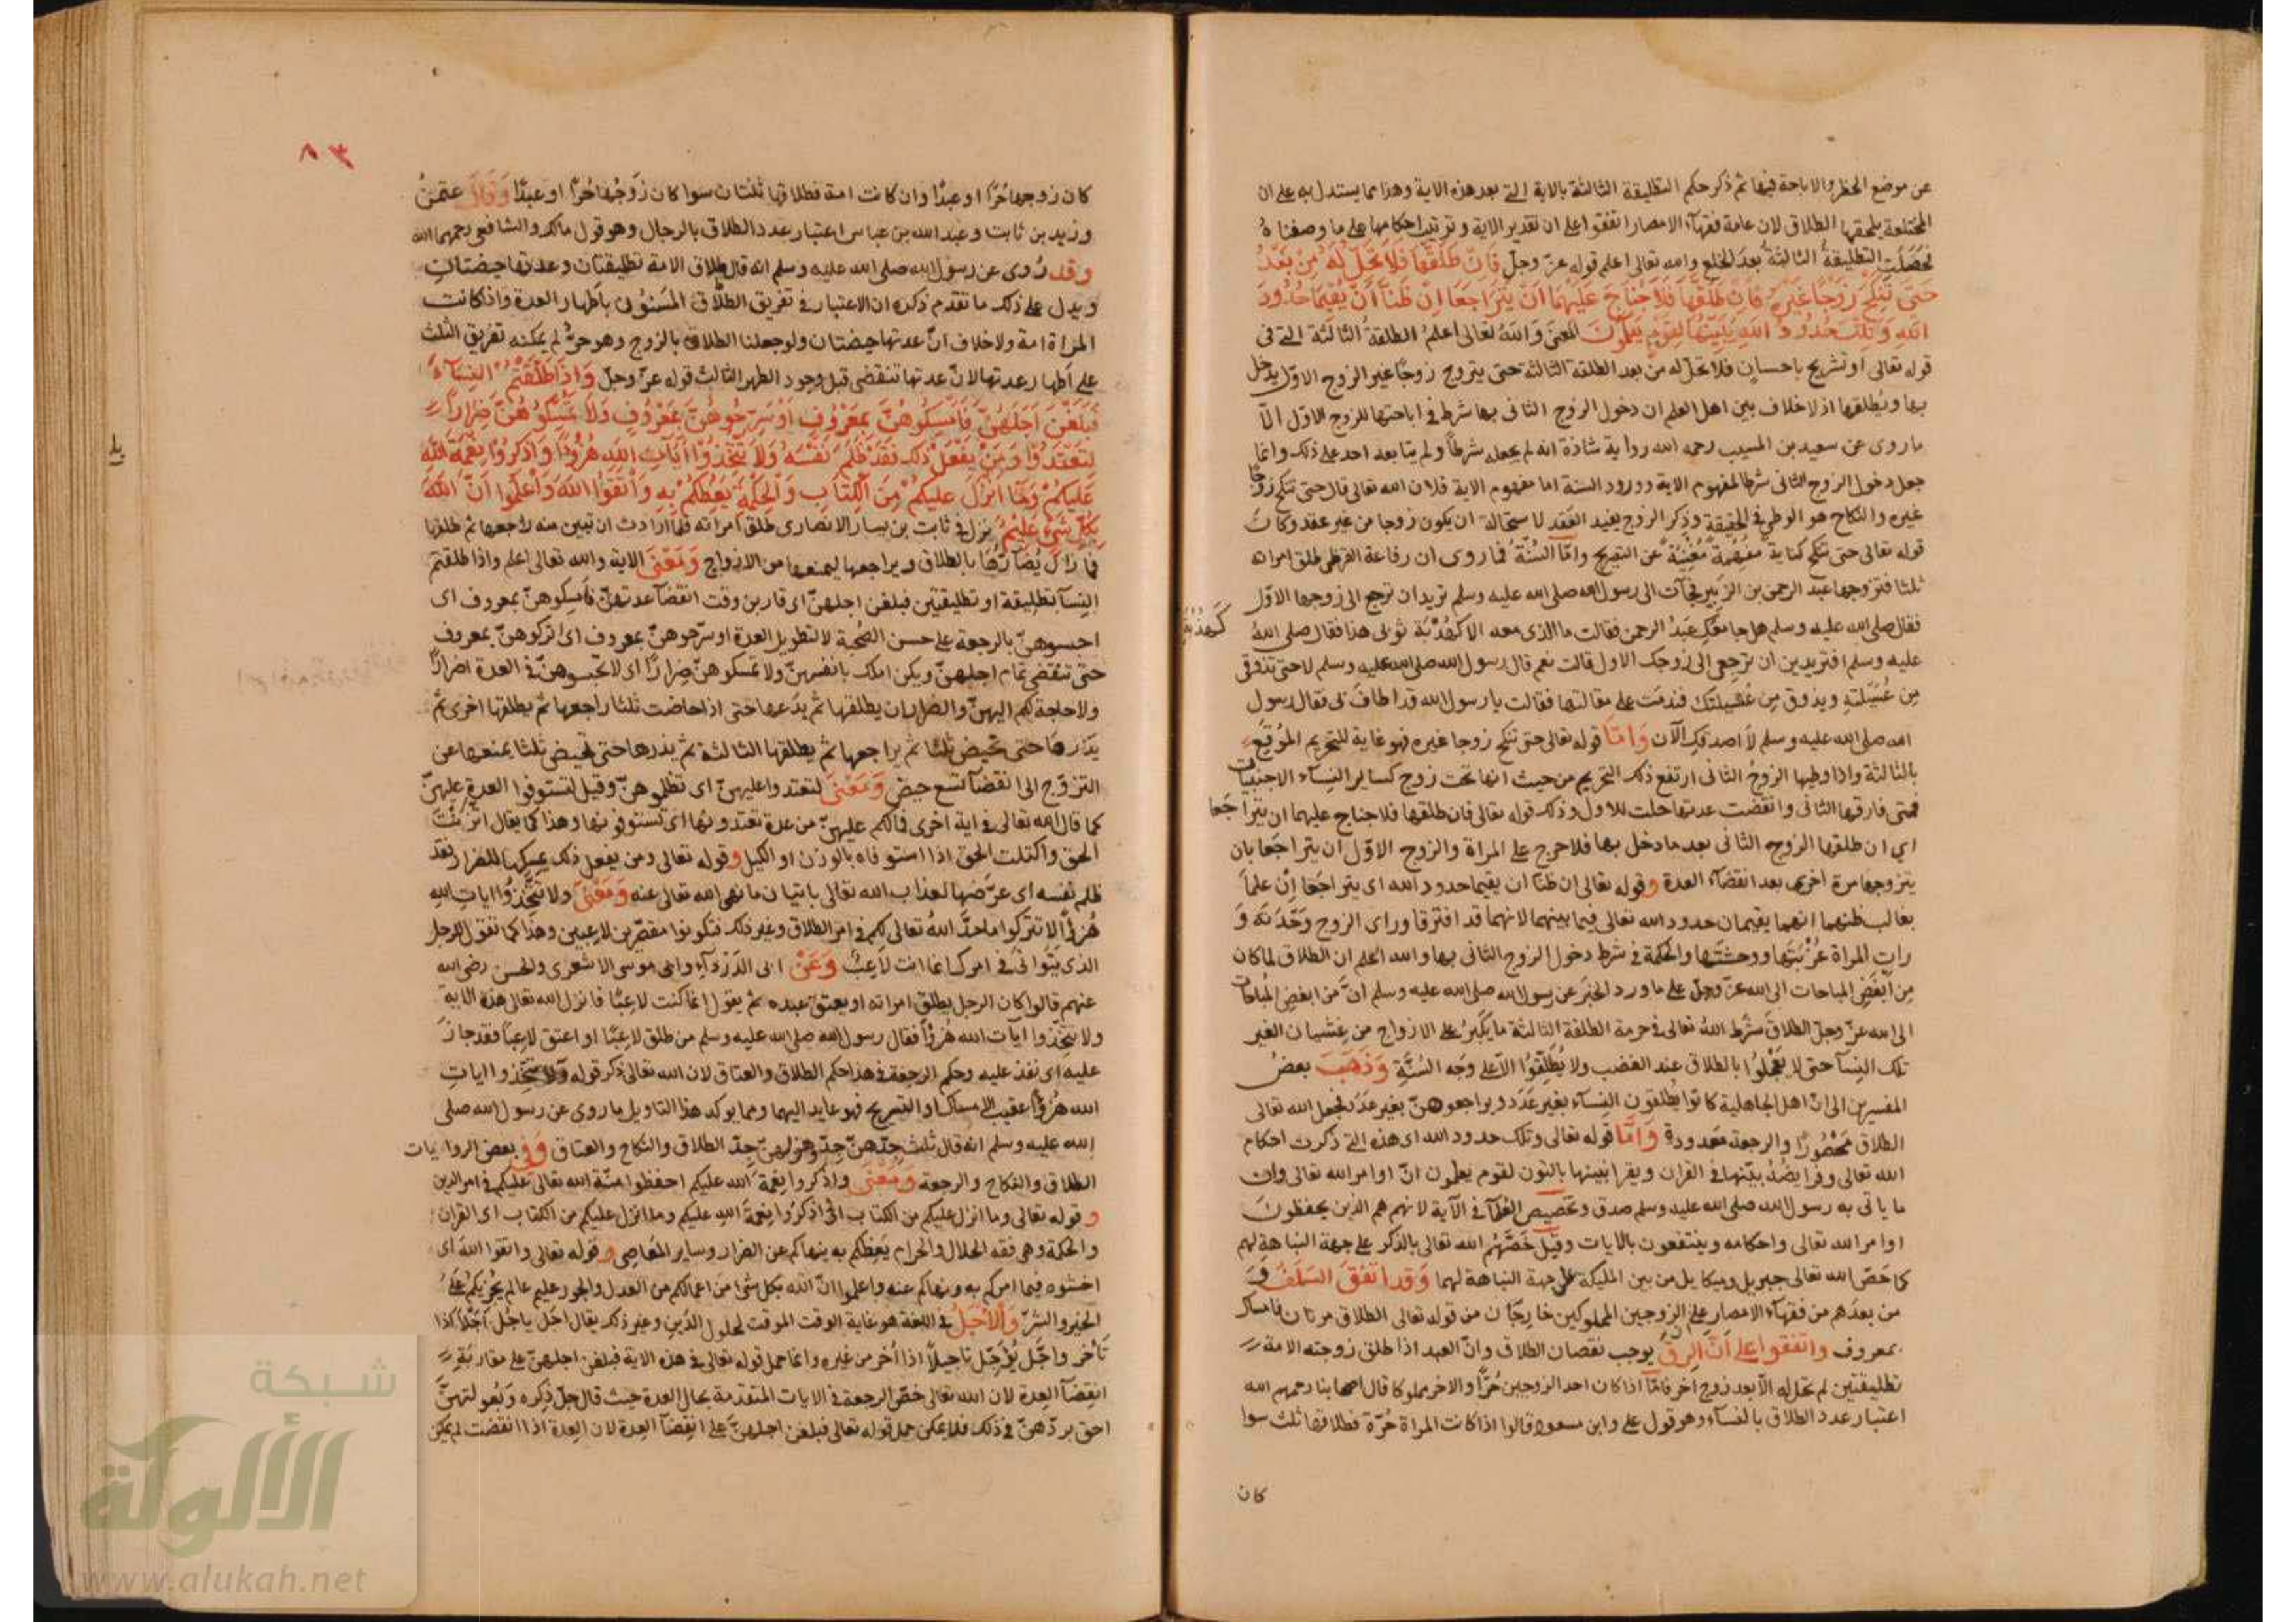 عن موضع الحظر والاباحة فيها ثم ذكر حكم التطليقة الثالثة بالاية التى بعد هذه الاية وهذا مما يستدل به على ان
المختلعة يلحقها الطلاق لان عامة فقهآء الامصار اتفقوا على ان تقدير الاية وترتيب احكامها على ما وصفناه
فحصلت التطليقة الثالثة بعد الخلع والله تعالى اعلم قوله عز وجل فان طلقها فلا تحل له من بعد
حتى تنكح زوجا غيره فان طلقها فلا جناح عليهما ان يتراجعا ان ظنا ان يقيما حدود
الله وتلك حدود الله يبينها لقوم يعلمون المعنى والله تعالى اعلم الطلقة الثالثة التى فى
قوله تعالى او تسريح باحسان فلا تحل له من بعد الطلقة الثالثة حتى يتزوج زوجا غير الزوج الاول يدخل
بها ويطلقها اذ لا خلاف بين اهل العلم ان دخول الزوج الثانى بها شرط فى اباحتها للزوج الاول الا
ما روى عن سعيد بن المسيب رحمه الله رواية شاذة انه لم يجعله شرطا ولم يتابعه احد على ذلك وانما
جعل دخول الزوج الثانى شرطا لمفهوم الاية وورود السنة اما مفهوم الاية فلان الله تعالى قال حتى تنكح زوجا
غيره والنكاح هو الوطئ فى الحقيقة وذكر الزوج يفيد العقد لاستحالة ان يكون زوجا من غير عقد وكانت
قوله تعالى حتى تنكح كناية مفهمة مغنية عن التصريح واما السنة فما روى ان رفاعة القرظى طلق امراته
ثلثا فتزوجها عبد الرحمن بن الزبير فجآت الى رسول الله صلى الله عليه وسلم تريد ان ترجع الى زوجها الاول
فقال صلى الله عليه وسلم هل جامعك عبد الرحمن فقالت ما الذى معه الا كهدبة ثوبى هذا فقال صلى الله
عليه وسلم افتريدين ان ترجعى الى زوجك الاول قالت نعم قال رسول الله صلى الله عليه وسلم لا حتى تذوقى
من عسيلته ويذوق من عسيلتك فندمت على مقالتها فقالت يا رسول الله قد اطاف بى فقال رسول
الله صلى الله عليه وسلم لا اصدقك الآن واما قوله تعالى حتى تنكح زوجا غيره فهو غاية للتحريم الموقع
بالثالثة واذا وطيها الزوج الثانى ارتفع ذلك التحريم من حيث انها تحت زوج كساير النسآء الاجنبيات
فمتى فارقها الثانى وانقضت عدتها حلت للاول وذلك قوله تعالى فان طلقها فلا جناح عليهما ان يتراجعا
اي ان طلقها الزوج الثانى بعد ما دخل بها فلا حرج على المراة والزوج الاول ان يتراجعا بان
يتزوجها مرة اخرى بعد انقضآء العدة وقوله تعالى ان ظنا ان يقيما حدود الله اى يتراجعا ان علما
بغالب ظنهما انهما يقيمان حدود الله تعالى فيما بينهما لانهما قد افترقا وراى الزوج وحدته و
رات المراة عزبتها ووحشتها والحكمة فى شرط دخول الزوج الثانى بها والله اعلم ان الطلاق لما كان
من ابغض المباحات الى الله عز وجل على ما ورد الخبر عن رسول الله صلى الله عليه وسلم ان من ابغض المباحات
الى الله عز وجل الطلاق شرط الله تعالى فى حرمة الطلقة الثالثة ما يكبر على الازواج من غشيان الغير
تلك النسآ حتى لا يعجلوا بالطلاق عند الغضب ولا يطلقوا الا على وجه السنة وذهب بعض
المفسرين الى ان اهل الجاهلية كانوا يطلقون النسآء بغير عدد ويراجعوهن بغير عدد فجعل الله تعالى
الطلاق محصورا والرجعة معدودة واما قوله تعالى وتلك حدود الله اى هذه التى ذكرت احكام
الله تعالى وفرايضه بينها فى القران ويقرا نبينها بالنون لقوم يعلمون ان اوامر الله تعالى وان
ما ياتى به رسول الله صلى الله عليه وسلم صدق وتخصيص العلمآ فى الآية لانهم هم الذين يحفظون
اوامر الله تعالى واحكامه وينتفعون بالايات وقيل خصهم الله تعالى بالذكر على جهة النباهة لهم
كما خص الله تعالى جبريل وميكايل من بين المليكة على جهة النباهة لهما وقد اتفق السلف و
من بعدهم من فقهآء الامصار على الزوجين المملوكين خارجان من قوله تعالى الطلاق مرتان فامساك
بمعروف واتفقوا على ان الرق يوجب نقصان الطلاق وان العبد اذا طلق زوجته الامة
تطليقتين لم تحل له الا بعد زوج آخر فاما اذا كان احد الزوجين حرا والاخر مملوكا قال اصحابنا رحمهم الله
اعتبار عدد الطلاق بالنسآء وهو قول على وابن مسعود قالوا اذا كانت المراة حرة فطلاقها ثلث سوا
كان
٨٣
كان زوجها حرا او عبدا وان كانت امة فطلاقها ثنتان سوا كان زوجها حرا او عبدا وقال عثمن
وزيد بن ثابت وعبد الله بن عباس اعتبار عدد الطلاق بالرجال وهو قول مالك والشافعى رحمهما الله
وقد روى عن رسول الله صلى الله عليه وسلم انه قال طلاق الامة تطليقتان وعدتها حيضتان
ويدل على ذلك ما تقدم ذكره ان الاعتبار فى تفريق الطلاق المسنون باطهار العدة واذا كانت
المراة امة ولا خلاف ان عدتها حيضتان ولو جعلنا الطلاق بالزوج وهو حر لم يمكنه تفريق الثلث
على اطهار عدتها لان عدتها تنقضى قبل وجود الطهر الثالث قوله عز وجل واذا طلقتم النسآء
فبلغن اجلهن فامسكوهن بمعروف او سرحوهن بمعروف ولا تمسكوهن ضرارا
لتعتدوا ومن يفعل ذلك فقد ظلم نفسه ولا تتخذوا آيات الله هزوا واذكروا نعمة الله
عليكم وما انزل عليكم من الكتاب والحكمة يعظكم به واتقوا الله واعلموا ان الله
بكل شئ عليم نزل فى ثابت بن يسار الانصارى طلق امراته فلما ارادت ان تبين منه راجعها ثم طلقها
فما زال يضارها بالطلاق ويراجعها ليمنعها من الازواج ومعنى الاية والله تعالى اعلم واذا طلقتم
النسآ تطليقة او تطليقتين فبلغن اجلهن اى قاربن وقت انقضآ عدتهن فامسكوهن بمعروف اى
احبسوهن بالرجعة على حسن الصحبة لا لتطويل العدة او سرحوهن بمعروف اى اتركوهن بمعروف
حتى تنقضى تمام اجلهن ويكن املك بانفسهن ولا تمسكوهن ضرارا اى لا تحبسوهن فى العدة اضرارا
ولا حاجة لكم اليهن والضرار ان يطلقها ثم يدعها حتى اذا حاضت ثلثا راجعها ثم يطلقها اخرى ثم
يذرها حتى تحيض ثلثا ثم يراجعها ثم يطلقها الثالثة ثم يذرها حتى تحيض ثلثا يمنعها عن
التزوج الى انقضآ تسع حيض ومعنى لتعتدوا عليهن اى تظلموهن وقيل لتستوفوا العدة عليهن
كما قال الله تعالى فى اية اخرى فما لكم عليهن من عدة تعتدونها اى تستوفونها وهذا كما يقال اتزنت
الحق واكتلت الحق اذا استوفاه بالوزن او الكيل وقوله تعالى ومن يفعل ذلك يمسكها للضرار فقد
ظلم نفسه اى عرضها لعذاب الله تعالى باتيان ما نهى الله تعالى عنه ومعنى ولا تتخذوا ايات الله
هزوا لا تتركوا ما حد الله تعالى لكم فى امر الطلاق وغير ذلك فتكونوا مقصرين لاعبين وهذا كما تقول للرجل
الذى يتوانى فى امر كانما انت لاعب وعن ابى الدردآء وابى موسى الاشعرى والحسن رضى الله
عنهم قالوا كان الرجل يطلق امراته او يعتق عبده ثم يقول انما كنت لاعبا فانزل الله تعالى هذه الاية
ولا تتخذوا آيات الله هزوا فقال رسول الله صلى الله عليه وسلم من طلق لاعبا او اعتق لاعبا فقد جاز
عليه اى نفذ عليه وحكم الرجعة فى هذا حكم الطلاق والعتاق لان الله تعالى ذكر قوله ولا تتخذوا ايات
الله هزوا عقيب الامساك والتسريح فهو عايد اليهما ومما يوكد هذا التاويل ما روى عن رسول الله صلى
الله عليه وسلم انه قال ثلث جدهن جد وهزلهن جد الطلاق والنكاح والعتاق وفى بعض الروايات
الطلاق والنكاح والرجعة ومعنى واذكروا نعمة الله عليكم احفظوا منة الله تعالى عليكم فى امر الدين
وقوله تعالى وما انزل عليكم من الكتاب اى اذكروا نعمة الله عليكم وما انزل عليكم من الكتاب اى القران
والحكمة وهى فقه الحلال والحرام يعظكم به ينهاكم عن الضرار وساير المعاصى وقوله تعالى واتقوا الله اى
اخشوه فيما امركم به ونهاكم عنه واعلموا ان الله بكل شئ من اعمالكم من العدل والجور عليم عالم يجزيكم على
الخير والشر والاجل فى اللغة هو غاية الوقت الموقت لحلول الدين وغير ذلك يقال اجل ياجل اجلا اذا
تاخر واجل يؤجل تاجيلا اذا اخر من غيره وانما حمل قوله تعالى فى هذه الاية فبلغن اجلهن على مقاربة
انقضآ العدة لان الله تعالى خص الرجعة فى الايات المتقدمة بحال العدة حيث قال جل ذكره وبعولتهن
احق بردهن فى ذلك فلا يمكن حمل قوله تعالى فبلغن اجلهن على انقضآ العدة لان العدة اذا انقضت لم يكن
شبكة
الألوكة
www.alukah.net